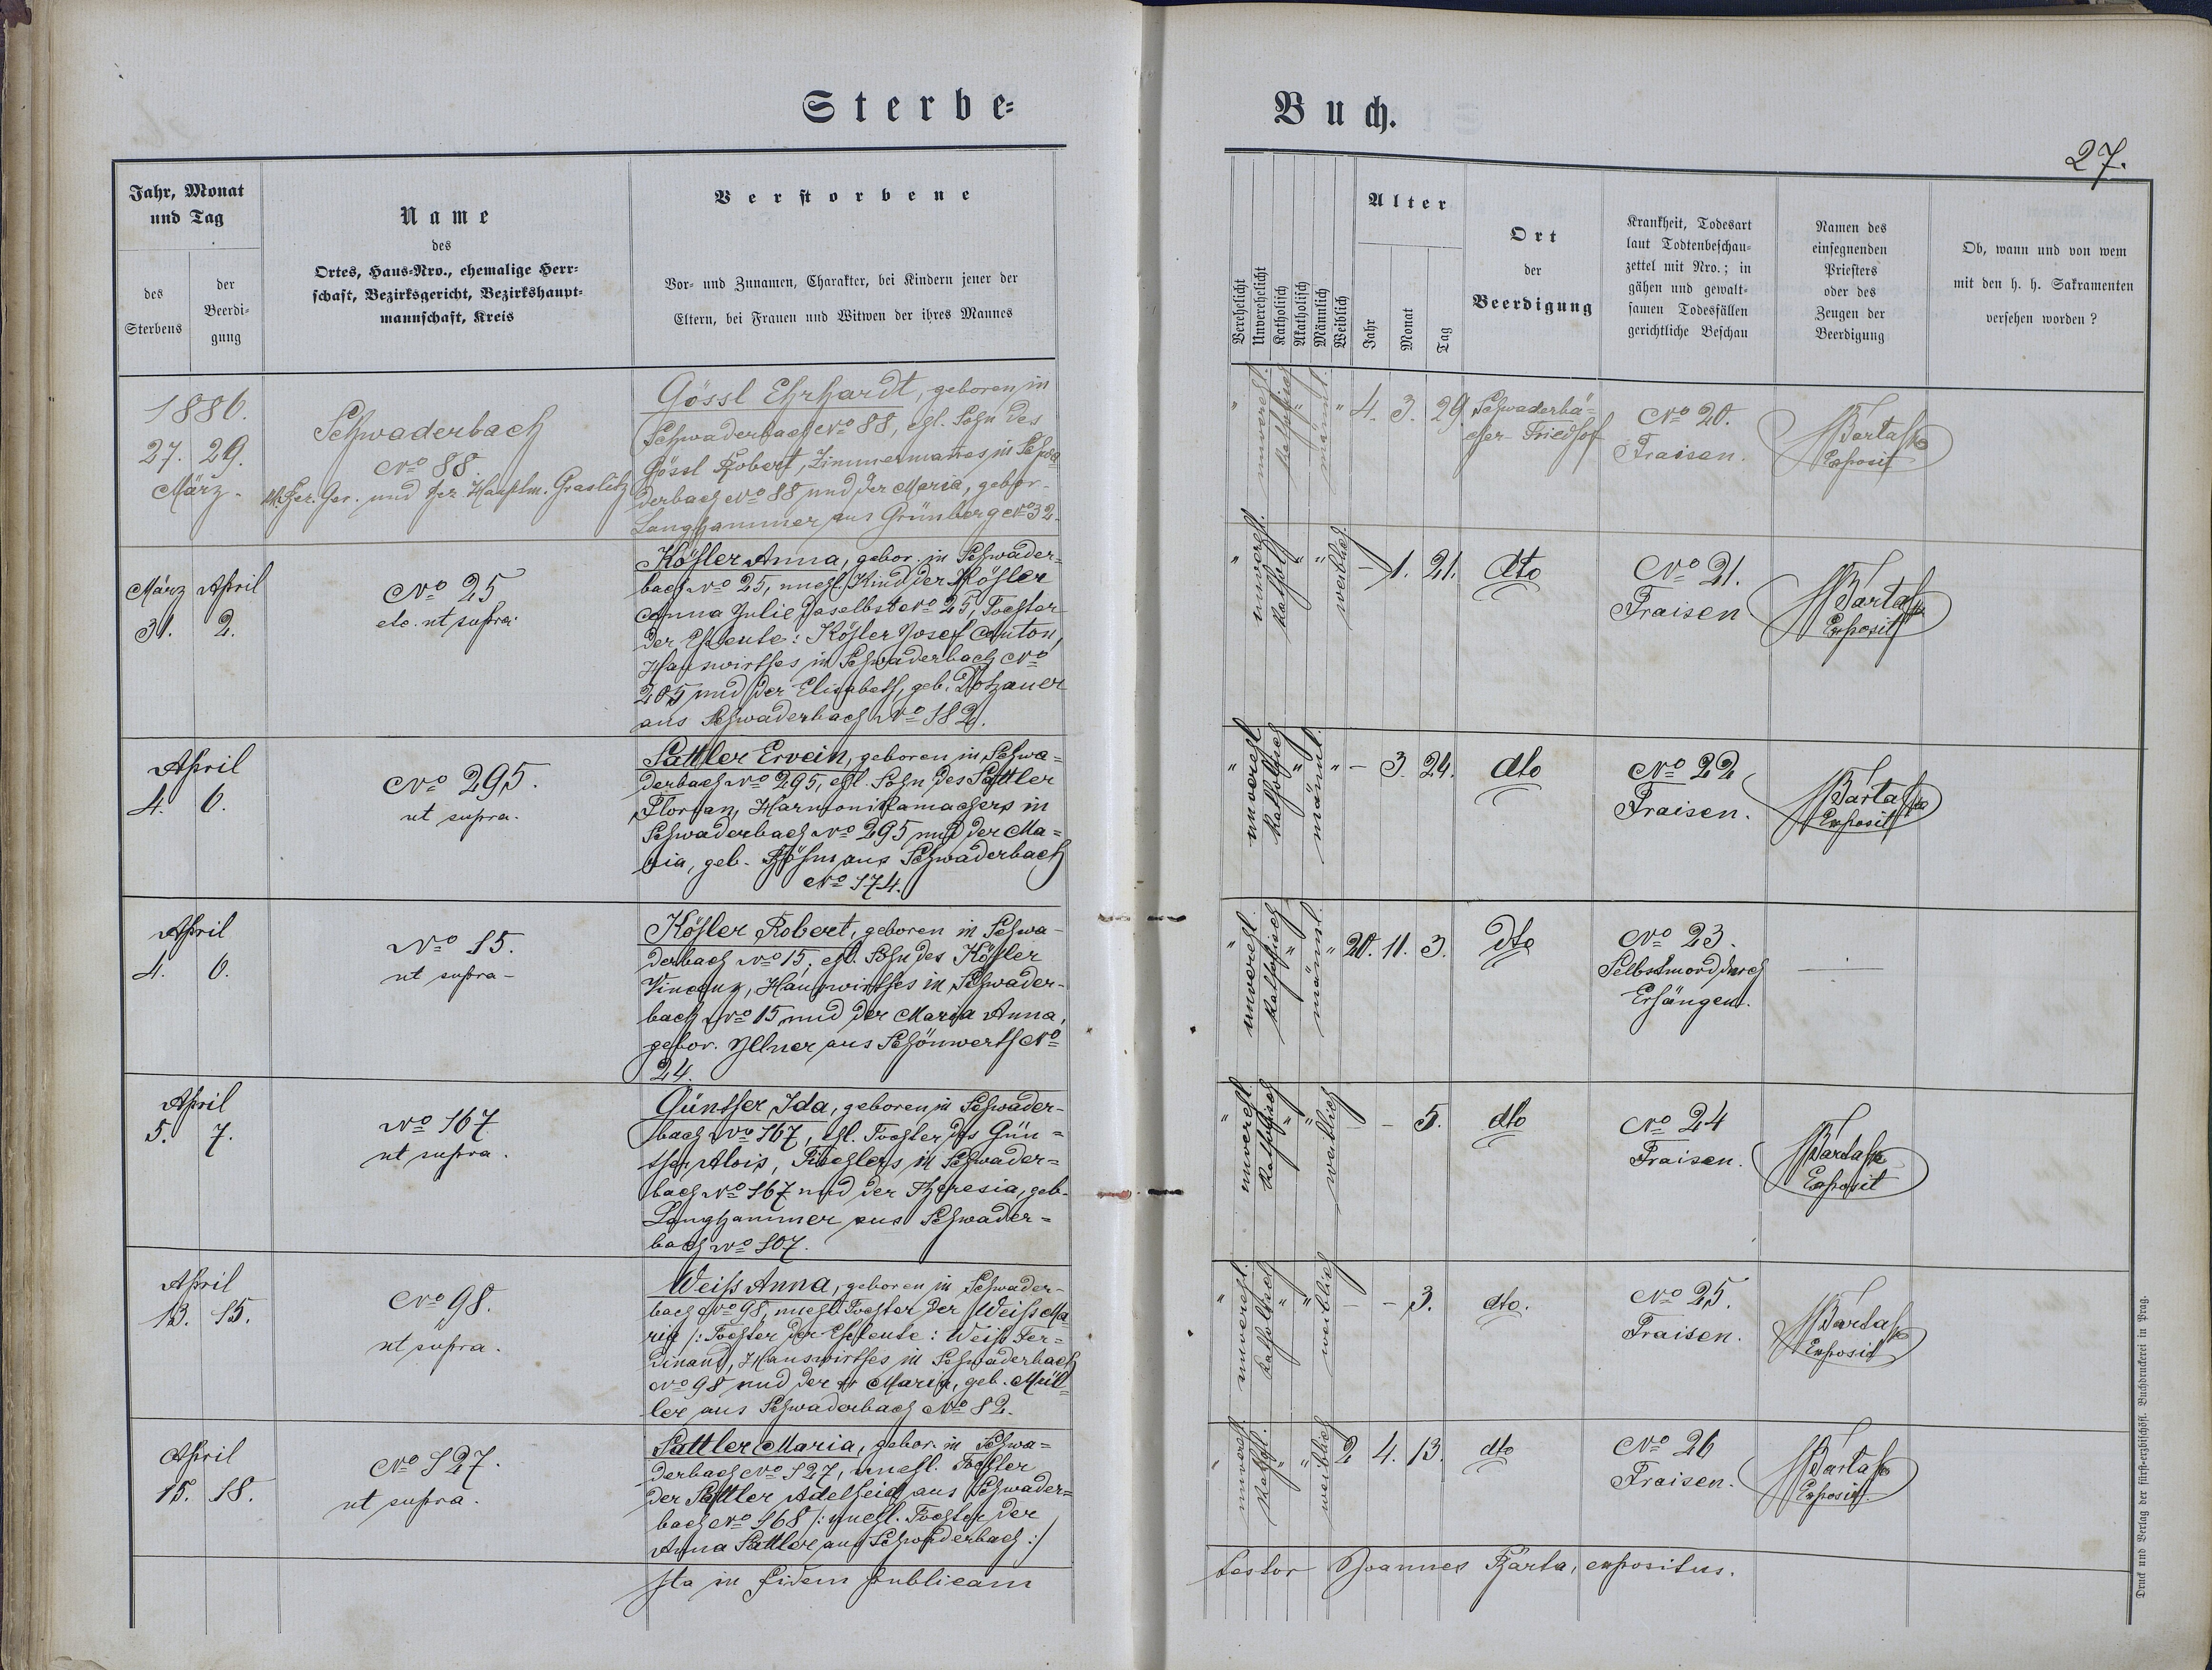 Sterbe=
Buch.
27.
Jahr, Monat
und Tag
des
Sterbens
der
Beerdi=
gung
Name
des
Ortes, Haus-Nro., ehemalige Herr=
schaft, Bezirksgericht, Bezirkshaupt=
mannschaft, Kreis
Verstorbene
Vor- und Zunamen, Charakter, bei Kindern jener der
Eltern, bei Frauen und Witwen der ihres Mannes
Verehelicht
Unverehelicht
Katholisch
Akatholisch
Männlich
Weiblich
Alter
Jahr
Monat
Tag
Ort
der
Beerdigung
Krankheit, Todesart
laut Todtenbeschau=
zettel mit Nro.; in
gähen und gewalt=
samen Todesfällen
gerichtliche Beschau
Namen des
einsegnenden
Priesters
oder des
Zeugen der
Beerdigung
Ob, wann und von wem
mit den h. h. Sakramenten
versehen worden?
1886.
27. 29.
März.
Schwaderbach
No 88.
Bez. Ger. und Bez. Hauptm. Graslitz
Gössl Ehrhardt, geboren in
Schwaderbach No 88, ehl. Sohn des
Gössl Robert, Zimmermannes in Schwa=
derbach No 88 und der Maria, gebor.
Langhammer aus Grünberg No 32.
" unverehl. katholisch " männl. " 4. 3. 29.
Schwaderbä=
cher Friedhof
No 20.
Fraisen.
J Barta
Exposit
März April
31. 2.
No 25
etc. ut supra.
Kößler Anna, gebor. in Schwader=
bach No 25, unehl. Kind der Kößler
Anna Julie daselbst No 25, Tochter
der Eheleute: Kößler Josef Anton,
Hauswirthes in Schwaderbach No
205 und der Elisabeth, geb. Dotzauer
aus Schwaderbach No 182.
" unverehl. kathol. " " weiblich - 1. 21.
dto
No 21.
Fraisen
J Barta
Exposit
April
4. 6.
No 295.
ut supra.
Sattler Ervein, geboren in Schwa=
derbach No 295, ehl. Sohn des Sattler
Florian, Harmonikamachers in
Schwaderbach No 295 und der Ma=
ria, geb. Böhm aus Schwaderbach
No 174.
" unverehl. katholisch " männl. " - 3. 24.
dto
No 22
Fraisen.
J Barta
Exposit
April
4. 6.
No 15.
ut supra-
Kößler Robert, geboren in Schwa=
derbach No 15, ehl. Sohn des Kößler
Vincenz, Hauswirthes in Schwader=
bach No 15 und der Maria Anna,
gebor. Illner aus Schönwerth No
24.
" unverehl. katholisch " männl. " 20. 11. 3.
dto
No 23.
Selbstmord durch
Erhängen.
April
5. 7.
No 167
ut supra.
Günther Ida, geboren in Schwader=
bach No 167, ehl. Tochter des Gün=
ther Alois, Tischlers in Schwader=
bach No 167 und der Theresia, geb.
Langhammer aus Schwader=
bach No 107.
" unverehl. katholisch " " weiblich - - 5.
dto
No 24
Fraisen.
J Barta
Exposit
April
13. 15.
No 98.
ut supra.
Weiss Anna, geboren in Schwader=
bach No 98, unehl. Tochter der Weiss Ma=
ria /: Tochter der Eheleute: Weiss Fer=
dinand, Hauswirthes in Schwaderbach
No 98 und der Maria, geb. Mül=
ler aus Schwaderbach No 82.
" unverehl. katholisch " " weiblich - - 3.
dto.
No 25.
Fraisen.
J Barta
Exposit
April
15. 18.
No 127.
ut supra.
Sattler Maria, gebor. in Schwa=
derbach No 127, unehl. Tochter
der Sattler Adelheid aus Schwader=
bach No 168 /: unehl. Tochter der
Anna Sattler aus Schwaderbach :/
" unverehl. kathol. " " weiblich 2 4. 13.
dto
No 26
Fraisen.
J Barta
Exposit.
Ita in fidem publicam
testor Joannes Barta, expositus.
Druck und Verlag der fürst-erzbischöfl. Buchdruckerei in Prag.